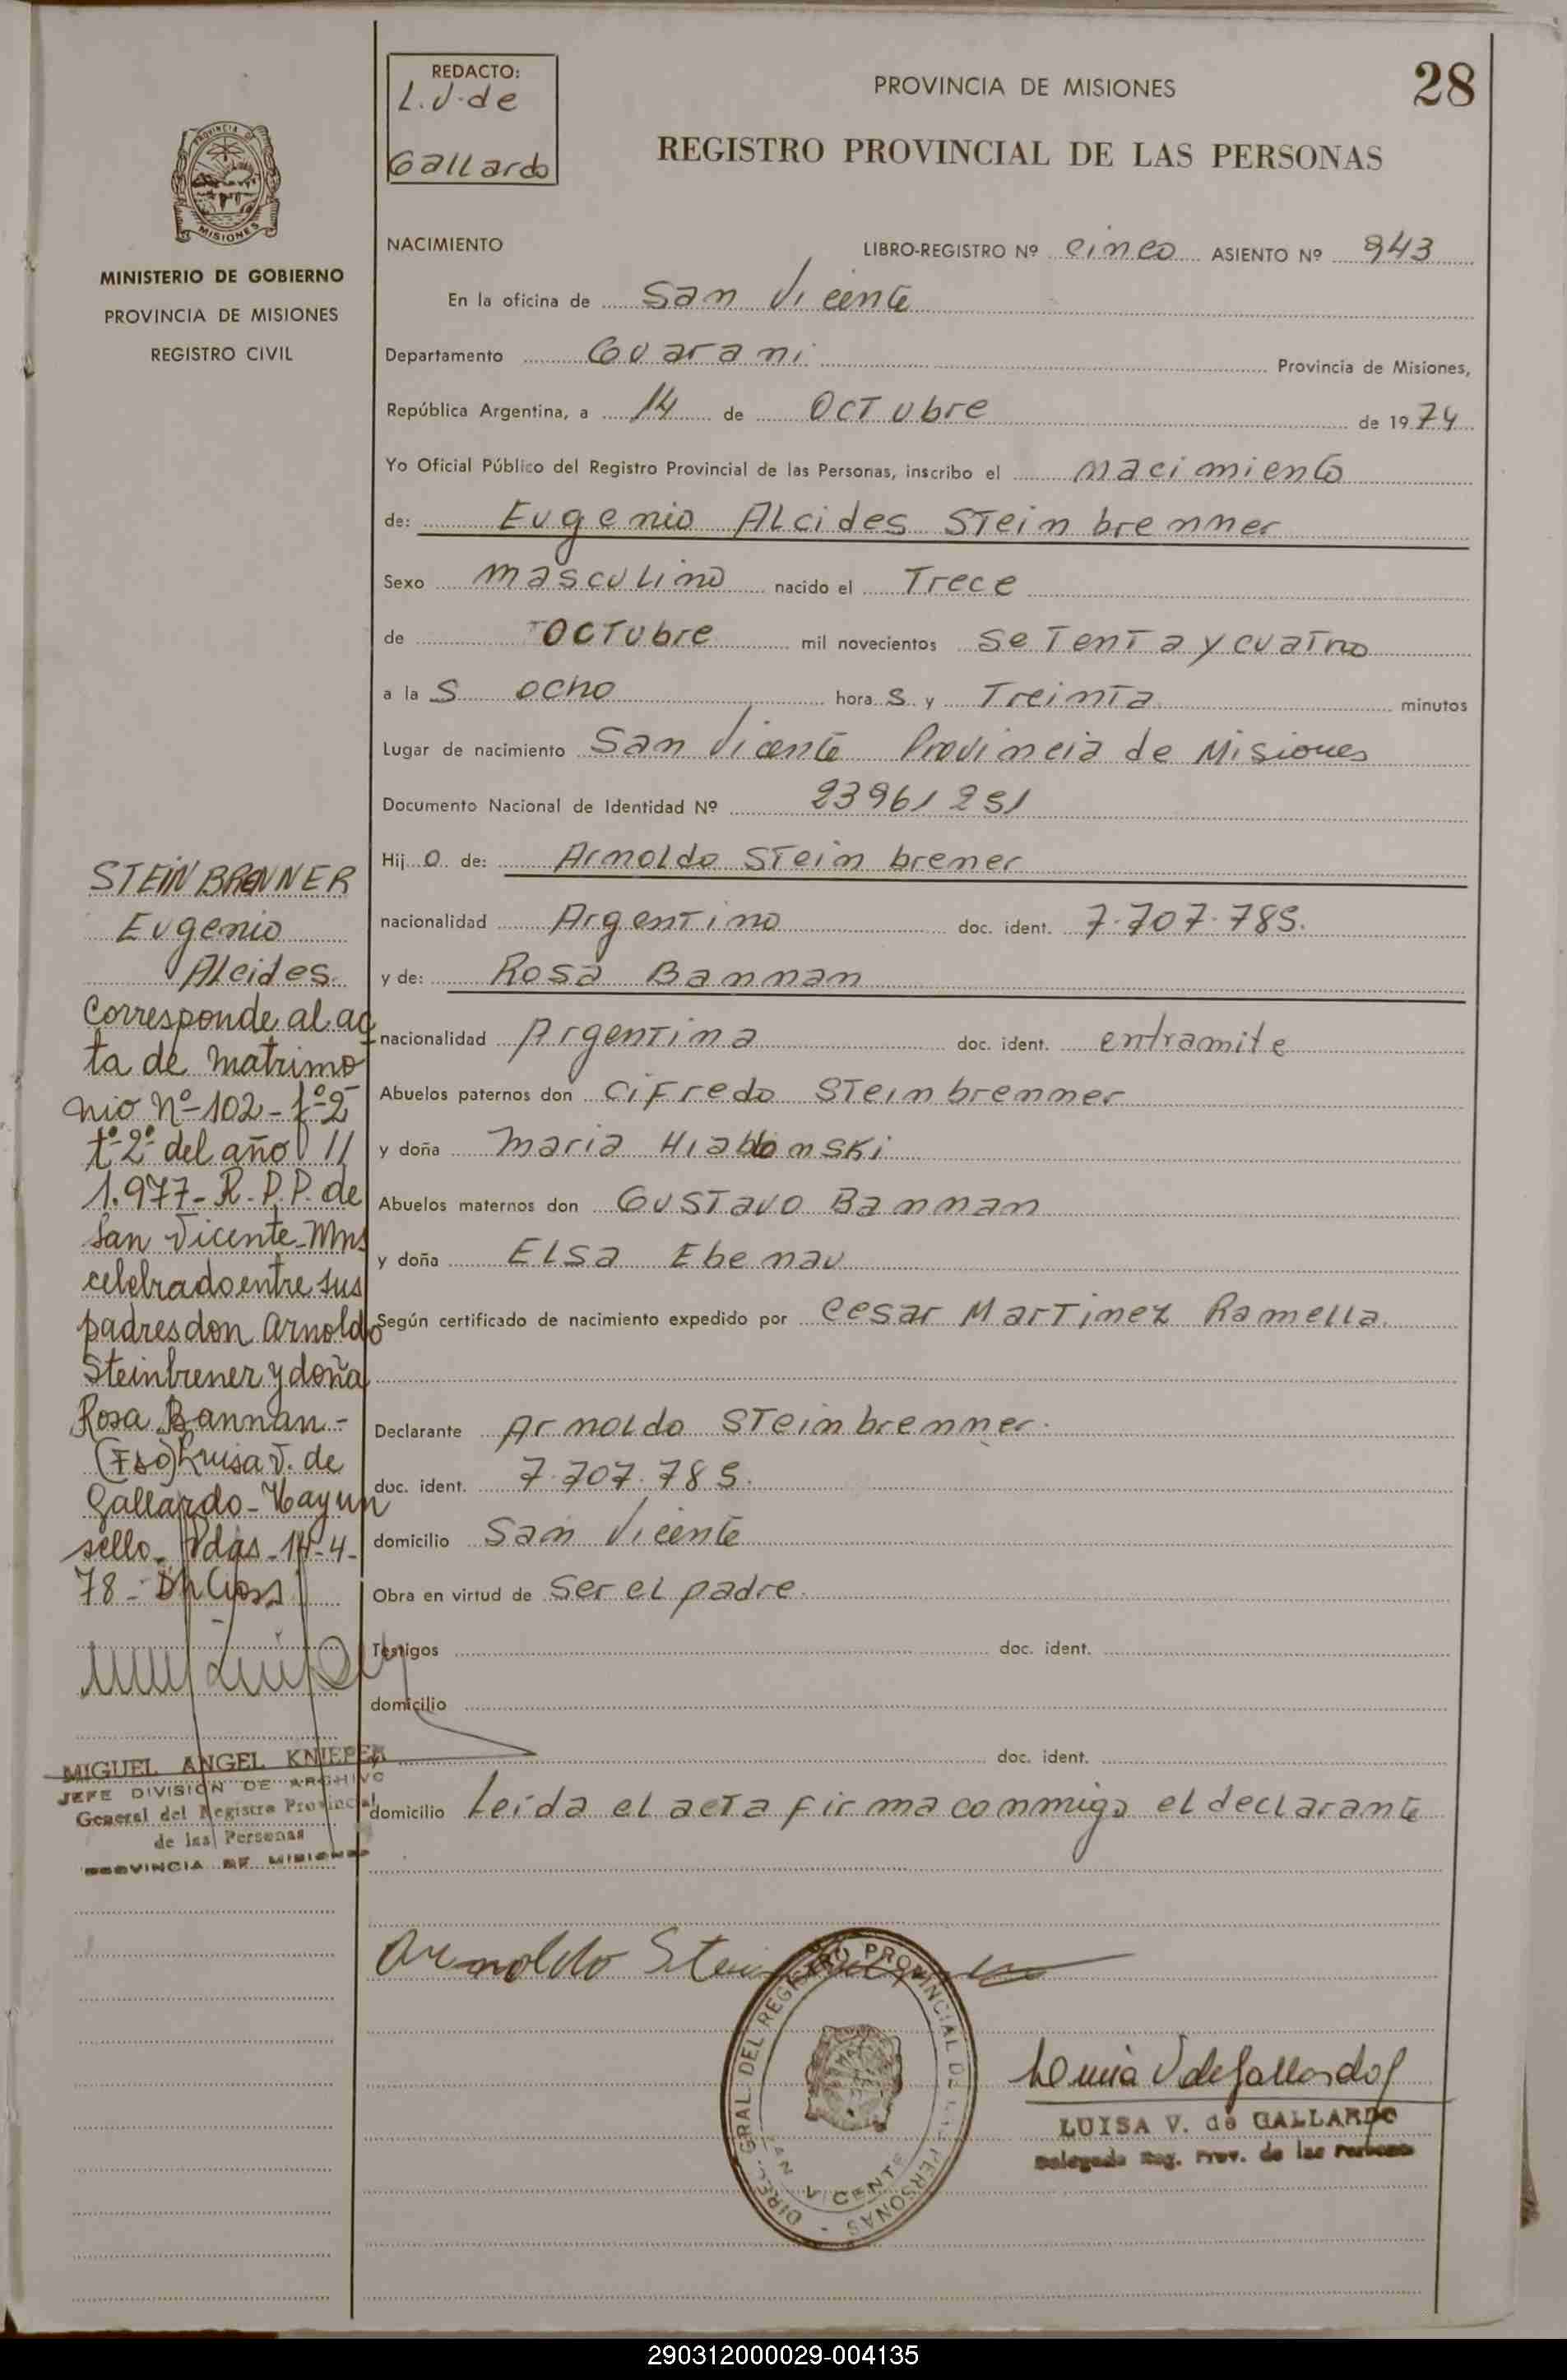 REDACTO:
L.V. de
Gallardo
PROVINCIA DE MISIONES
28
REGISTRO PROVINCIAL DE LAS PERSONAS
PROVINCIA DE
MISIONES
MINISTERIO DE GOBIERNO
PROVINCIA DE MISIONES
REGISTRO CIVIL
NACIMIENTO LIBRO-REGISTRO Nº cinco ASIENTO Nº 943
En la oficina de San Vicente
Departamento Guarani Provincia de Misiones,
República Argentina, a 14 de Octubre de 1974
Yo Oficial Público del Registro Provincial de las Personas, inscribo el nacimiento
de: Eugenio Alcides Steinbrenner
Sexo masculino nacido el Trece
de Octubre mil novecientos setenta y cuatro
a las ocho horas y Treinta minutos
Lugar de nacimiento San Vicente Provincia de Misiones
Documento Nacional de Identidad Nº 23961251
Hijo de: Arnoldo Steinbrener
nacionalidad Argentino doc. ident. 7.707.785.
y de: Rosa Bannan
nacionalidad Argentina doc. ident. entramite
Abuelos paternos don Cifredo Steinbrenner
y doña Maria
Abuelos maternos don Gustavo Bannan
y doña Elsa Ebenau
Según certificado de nacimiento expedido por Cesar Martinez Ramella.
Declarante Arnoldo Steinbrenner.
doc. ident. 7.707.785.
domicilio San Vicente
Obra en virtud de Ser el padre.
Testigos doc. ident.
domicilio
doc. ident.
domicilio Leida el acta firma conmigo el declarante
STEINBRENNER
Eugenio
Alcides.
Corresponde al ac
ta de matrimo
nio Nº-102-fº-2
tº-2º del año //
1.977- R.P.P. de
San Vicente-Mns
celebrado entre sus
padres don Arnoldo
Steinbrener y doña
Rosa Bannan.-
(Fdo) Luisa V. de
Gallardo-Hay un
sello. Pdas-14-4-
78-
MIGUEL ANGEL KNIEPER
JEFE DIVISION DE ARCHIVO
General del Registro Provincial
de las Personas
PROVINCIA DE MISIONES
Arnoldo
DIREC. GRAL. DEL REGISTRO PROVINCIAL DE LAS PERSONAS -
SAN VICENTE
Luisa V de Gallardo
LUISA V. de GALLARDO
Delegada Reg. Prov. de las Personas
290312000029-004135